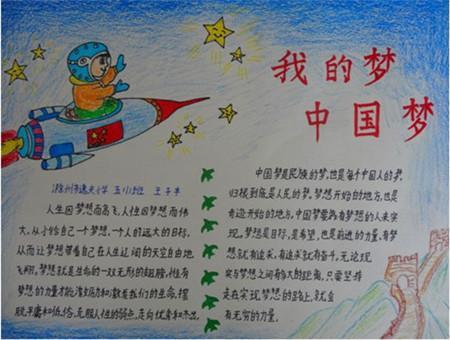 我的梦
中国梦
滁州市逸夫小学 五(1)班 王子丰
人生因梦想而高飞,人性因梦想而伟
大。从小给自己一个梦想,一个人的远大的目标,
从而让梦想带着自己在人生辽阔的天空自由地
飞翔,梦想就是生命的一双无形的翅膀,
梦想的力量才能
脱平庸和低俗,克服人性的弱点,走向优秀和杰出。
中国梦是民族的梦,也是每个中国人的梦,
归根到底是人民的梦。梦想开始的地方,也是
奇迹开始的地方。中国梦需为有梦想的人来实
现。梦想是目标,是希望,也是前进的力量。有梦
想就有追求,有追求就有奋斗,无论现
实与梦想之间有多大的距离,只要坚持
走在实现梦想的路上,就会
有无穷的力量。